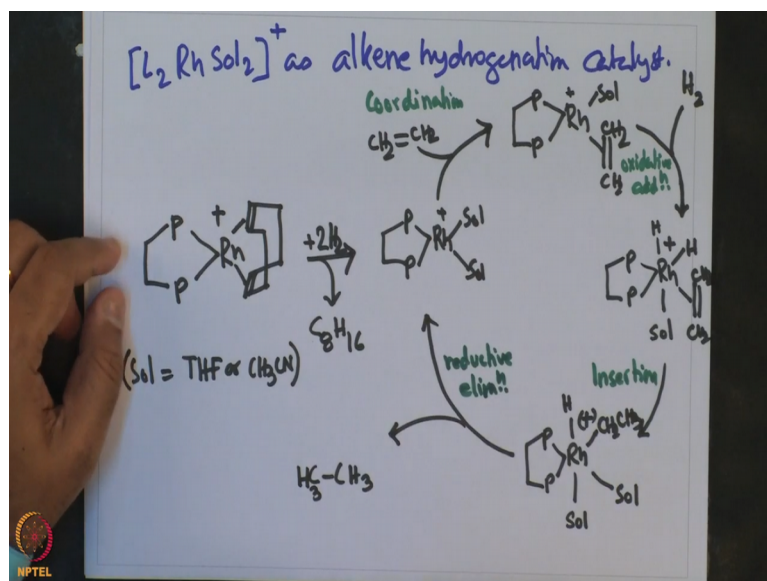 [L2 Rh Sol2]+ as alkene hydrogenation catalyst.
Coordination
CH2=CH2
P
P
Rh
+
Sol
CH2
CH2
H2
oxidative
add!!
P
P
Rh
+
+2H2
C8H16
P
P
Rh
+
Sol
Sol
H
H
P
P
Rh
+
CH2
Sol
(Sol = THF or CH3CN)
reductive
elim!!
Insertion
H
(+)
CH2CH2
P
P
Rh
Sol
Sol
H3C-CH3
NPTEL